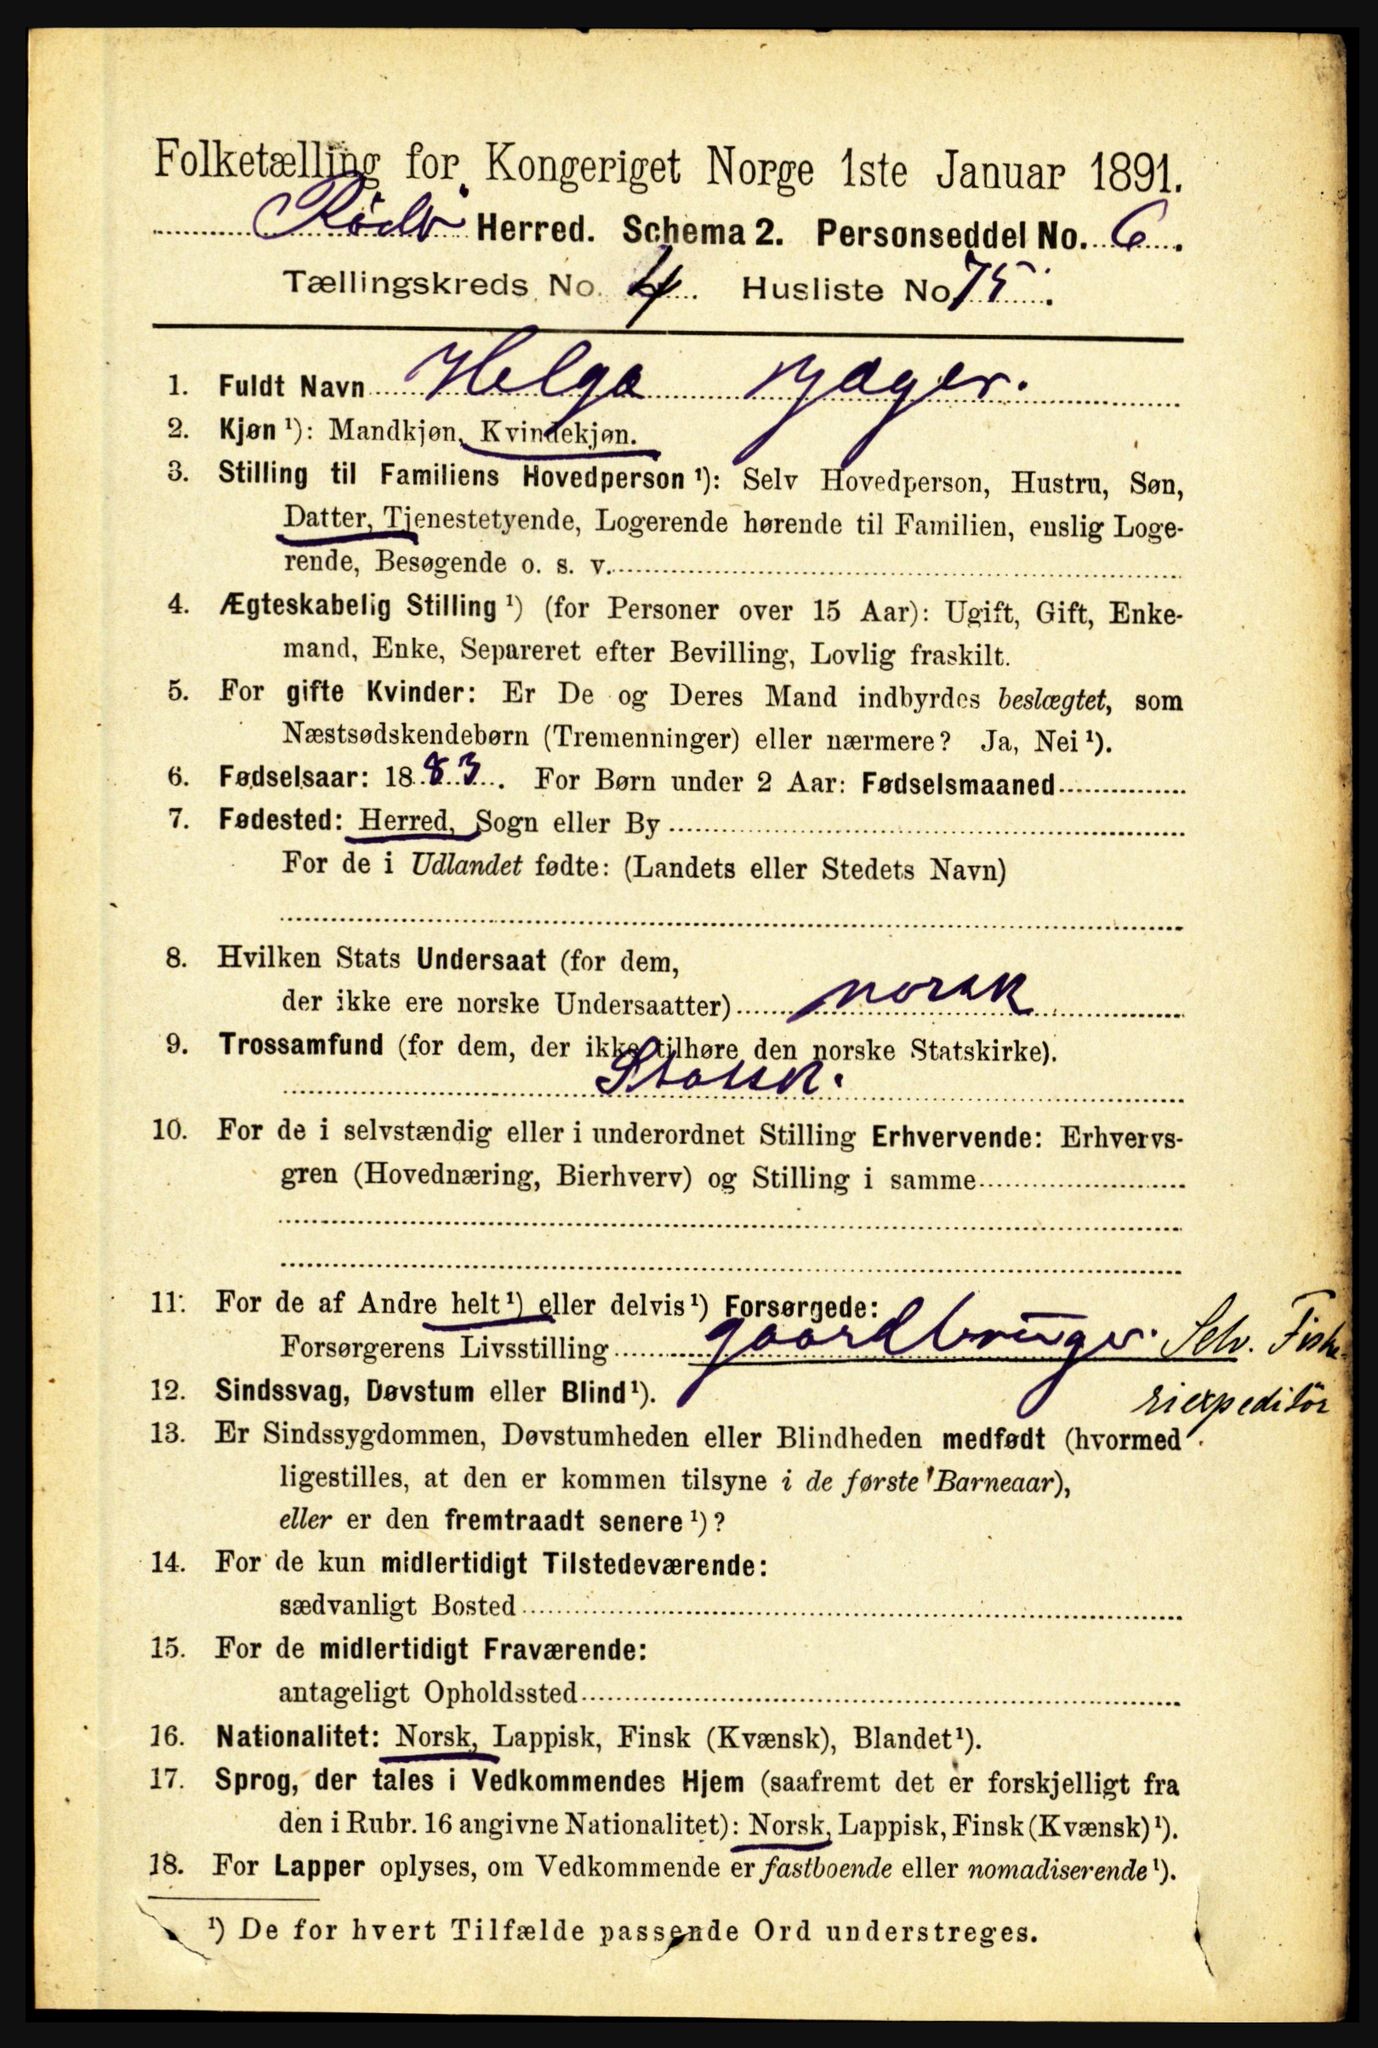 Folketælling for Kongeriget Norge 1ste Januar 1891.
Rödö Herred. Schema 2. Personseddel No. 6.
Tællingskreds No. 4. Husliste No 75.
1. Fuldt Navn Helga Jæger.
2. Kjøn ¹): Mandkjøn, Kvindekjøn.
3. Stilling til Familiens Hovedperson ¹): Selv Hovedperson, Hustru, Søn,
Datter, Tjenestetyende, Logerende hørende til Familien, enslig Loge-
rende, Besøgende o. s. v.
4. Ægteskabelig Stilling ¹) (for Personer over 15 Aar): Ugift, Gift, Enke-
mand, Enke, Separeret efter Bevilling, Lovlig fraskilt.
5. For gifte Kvinder: Er De og Deres Mand indbyrdes beslægtet, som
Næstsødskendebørn (Tremenninger) eller nærmere? Ja, Nei ¹).
6. Fødselsaar: 1883. For Børn under 2 Aar: Fødselsmaaned
7. Fødested: Herred, Sogn eller By
For de i Udlandet fødte: (Landets eller Stedets Navn)
8. Hvilken Stats Undersaat (for dem,
der ikke ere norske Undersaatter) norsk
9. Trossamfund (for dem, der ikke tilhøre den norske Statskirke).
Statsk.
10. For de i selvstændig eller i underordnet Stilling Erhvervende: Erhvervs-
gren (Hovednæring, Bierhverv) og Stilling i samme
11. For de af Andre helt ¹) eller delvis ¹) Forsørgede:
Forsørgerens Livsstilling gaardbruger. Selv. Fiske-
riexpeditør
12. Sindssvag, Døvstum eller Blind ¹).
13. Er Sindssygdommen, Døvstumheden eller Blindheden medfødt (hvormed
ligestilles, at den er kommen tilsyne i de første Barneaar),
eller er den fremtraadt senere ¹)?
14. For de kun midlertidigt Tilstedeværende:
sædvanligt Bosted
15. For de midlertidigt Fraværende:
antageligt Opholdssted
16. Nationalitet: Norsk, Lappisk, Finsk (Kvænsk), Blandet ¹).
17. Sprog, der tales i Vedkommendes Hjem (saafremt det er forskjelligt fra
den i Rubr. 16 angivne Nationalitet): Norsk, Lappisk, Finsk (Kvænsk) ¹).
18. For Lapper oplyses, om Vedkommende er fastboende eller nomadiserende ¹).
¹) De for hvert Tilfælde passende Ord understreges.